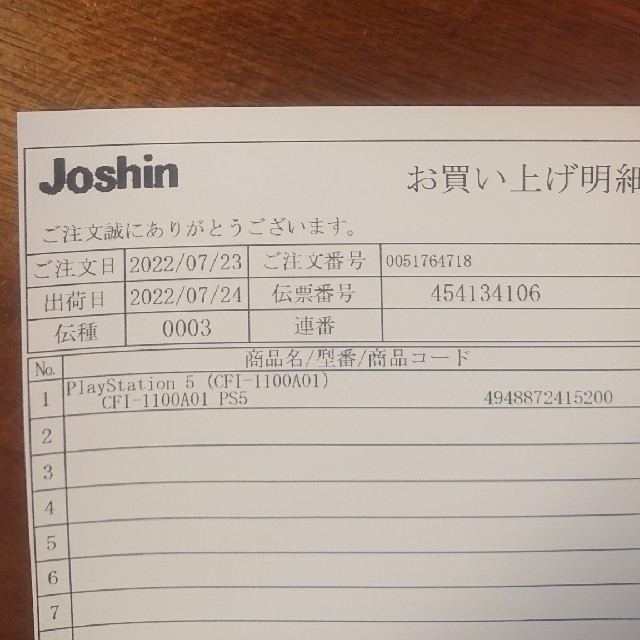 Joshin
お買い上げ明細
ご注文誠にありがとうございます。
ご注文日 2022/07/23 ご注文番号 0051764718
出荷日 2022/07/24 伝票番号 454134106
伝種 0003 連番
No. 商品名/型番/商品コード
1 PlayStation 5 (CFI-1100A01)
CFI-1100A01 PS5 4948872415200
2
3
4
5
6
7